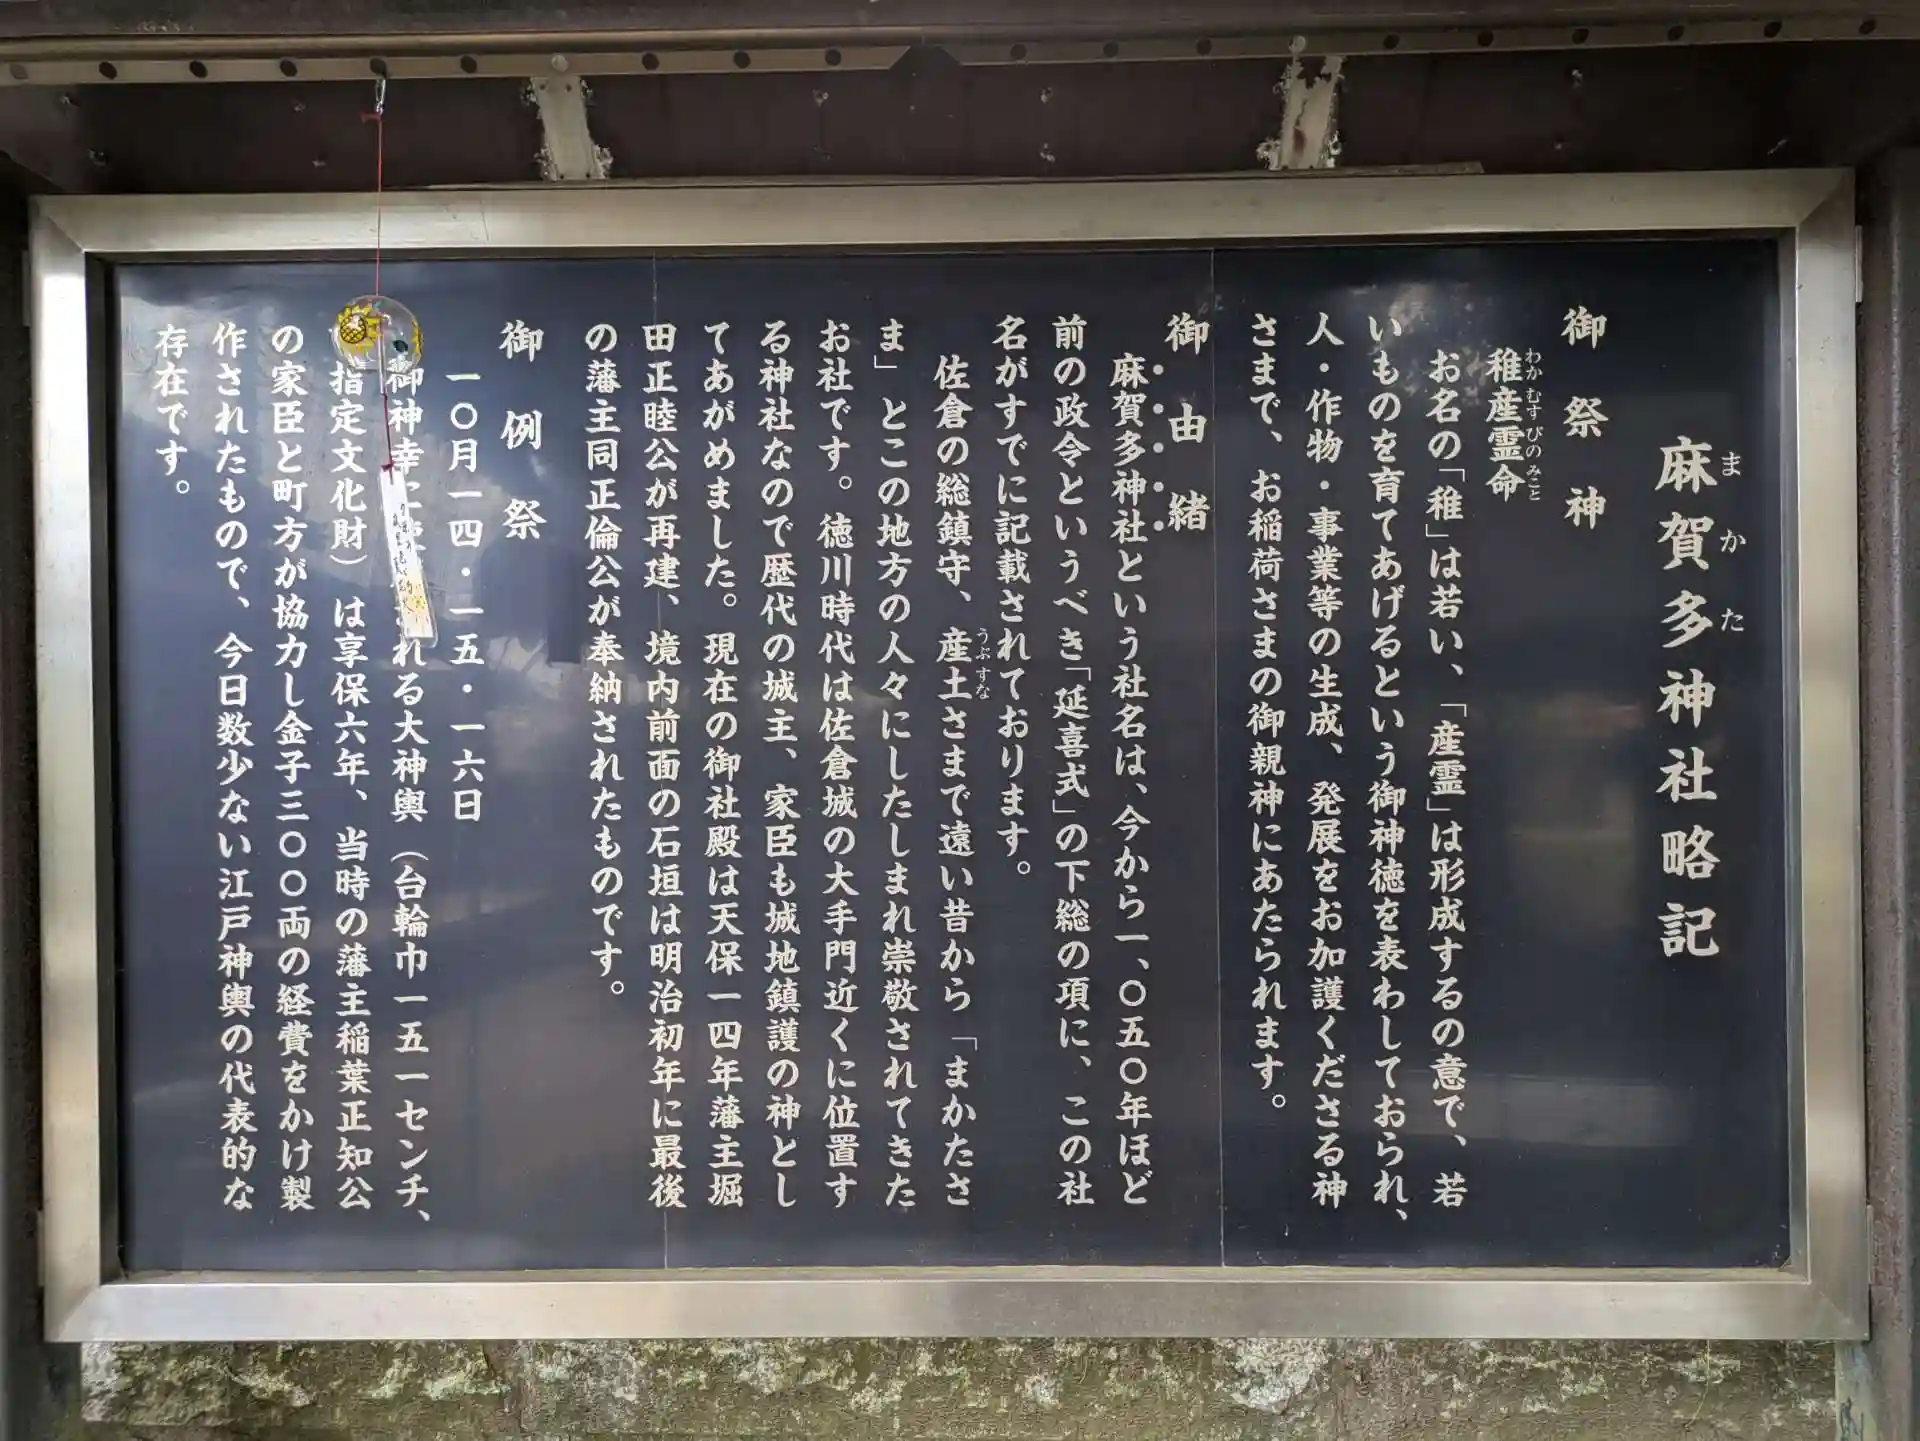 麻賀多神社略記
まかた
御祭神
稚産霊命
わかむすびのみこと
お名の「稚」は若い、「産霊」は形成するの意で、若
いものを育てあげるという御神徳を表わしておられ、
人・作物・事業等の生成、発展をお加護くださる神
さまで、お稲荷さまの御親神にあたられます。
御由緒
麻賀多神社という社名は、今から一、〇五〇年ほど
前の政令というべき「延喜式」の下総の項に、この社
名がすでに記載されております。
佐倉の総鎮守、産土さまで遠い昔から「まかたさ
うぶすな
ま」とこの地方の人々にしたしまれ崇敬されてきた
お社です。徳川時代は佐倉城の大手門近くに位置す
る神社なので歴代の城主、家臣も城地鎮護の神とし
てあがめました。現在の御社殿は天保一四年藩主堀
田正睦公が再建、境内前面の石垣は明治初年に最後
の藩主同正倫公が奉納されたものです。
御例祭
一〇月一四・一五・一六日
御神幸に れる大神輿（台輪巾一五一センチ、
指定文化財）は享保六年、当時の藩主稲葉正知公
の家臣と町方が協力し金子三〇〇両の経費をかけ製
作されたもので、今日数少ない江戸神輿の代表的な
存在です。